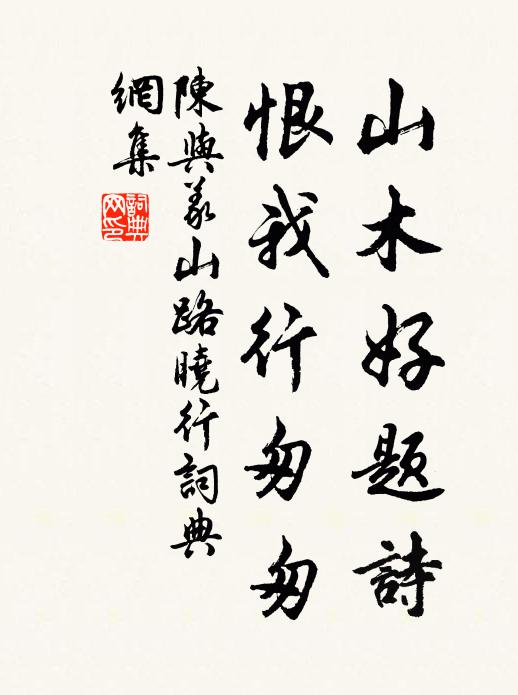 山木好题詩
恨我行匆匆
陳與義山路曉行詞典
網集
詞典
网印